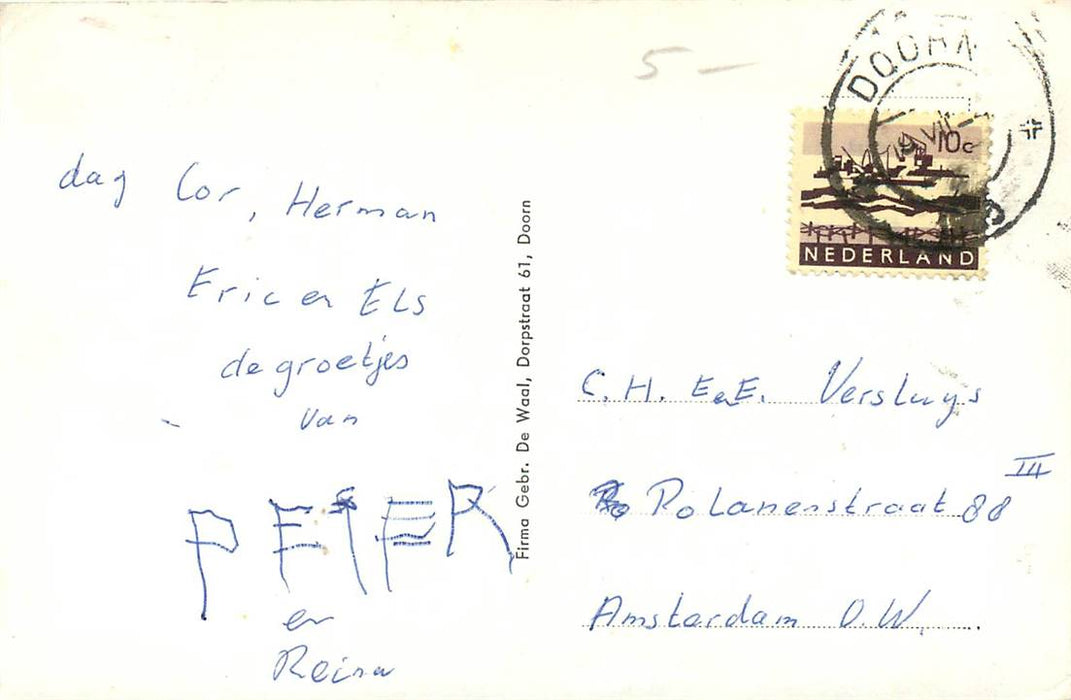 5 —
DOORN
19 VII
10c
NEDERLAND
dag Cor, Herman
Eric en Els
de groetjes
van
PETER
en
Reina
Firma Gebr. De Waal, Dorpstraat 61, Doorn
C. H. E en E. Versluys
Rolanenstraat 88 III
Amsterdam O.W.